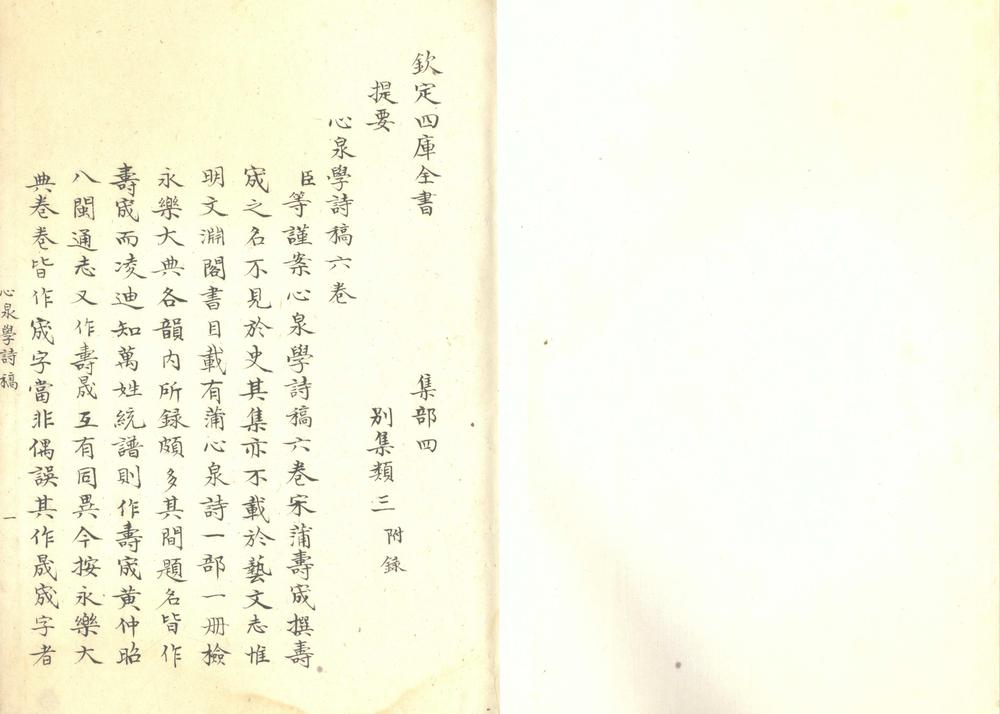 欽定四庫全書　集部四
提要　別集類三附錄
心泉學詩稿六卷
臣等謹案心泉學詩稿六卷宋蒲壽宬撰壽
宬之名不見於史其集亦不載於藝文志惟
明文淵閣書目載有蒲心泉詩一部一冊檢
永樂大典各韻內所録頗多其間題名皆作
壽宬而凌迪知萬姓統譜則作壽宬黃仲昭
八閩通志又作壽晟互有同異今按永樂大
典卷卷皆作宬字當非偶誤其作晟宬字者
心泉學詩稿
一